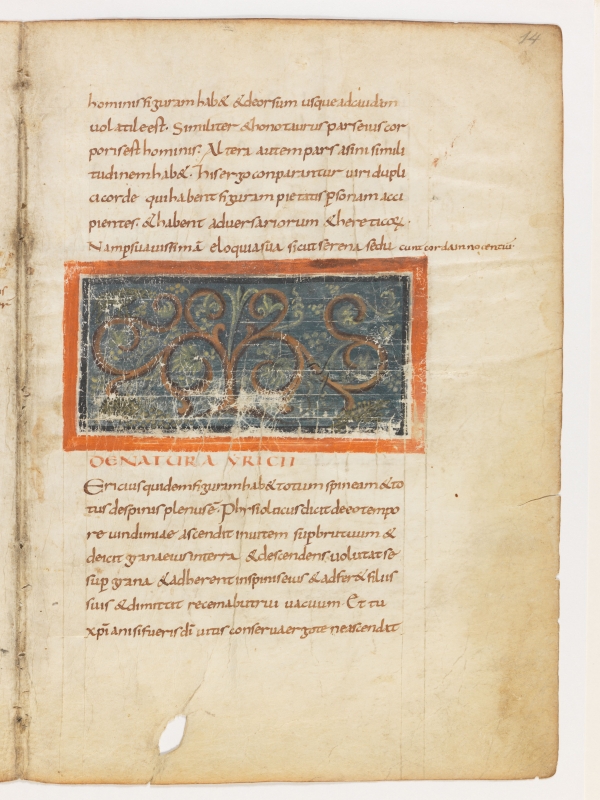 14
hominis figuram hab& & deorsum usque ad caudam
volatile est. Similiter & honotaurus pars eius cor
poris est hominis. Altera autem pars asini simili
tudinem hab&. his ergo conparantur viri dupli
ci corde qui habent figuram pietatis psonam acci
pientes. & habent adversariorum & hereticor.
Nam p suavissimā eloquia sua sicut serena sedu cunt corda innocentiu
DE NATURA YRICII
Ericius quidem figuram hab& totum spineam & to
tus de spinis plenus ē. Physiolticus dicit de eo tempo
re vindimiae ascendit in vitem sup brutuum &
deicit grana eius in terra & descendens volutat se
sup grana & adherent in spinis eius & adfer& filiis
suis & dimittit racemabutrui vacuum. Et tu
xpiani si fueris di vitis conserva ergo te ne ascendat